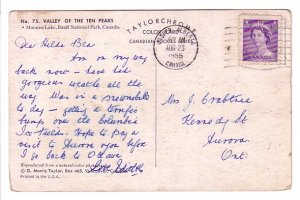 No. 75. VALLEY OF THE TEN PEAKS
Moraine Lake, Banff National Park, Canada.
TAYLORCHROME
COLOR
CANADIAN
AUG 23
1955
CANADA
Dear Hilda Bea
Am on my way
back now – have had
gorgeous weather all the
way. Was in a snowmobile
to day – getting a terrific
bump over the Columbia
Icefields. Hope to pay a
visit to Aurora again before
I go back to Ottawa
Mrs J. Crabtree
Kennedy St
Aurora
Ont.
Reproduced from a natural color
© G. Morris Taylor, Box 465,
Printed in the U.S.A.